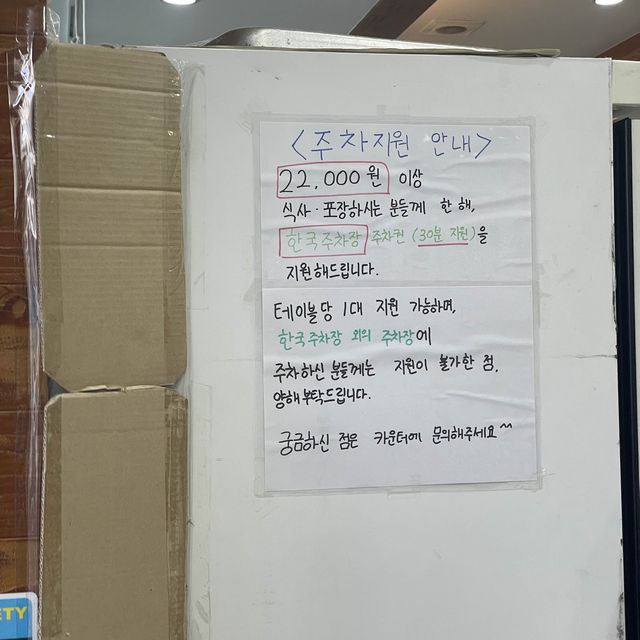 <주차지원 안내>
22,000원 이상
식사·포장하시는 분들께 한 해,
한국주차장 주차권 (30분 지원)을
지원해드립니다.
테이블당 1대 지원 가능하며,
한국주차장 외의 주차장에
주차하신 분들께는 지원이 불가한 점,
양해부탁드립니다.
궁금하신 점은 카운터에 문의해주세요^^
ETY